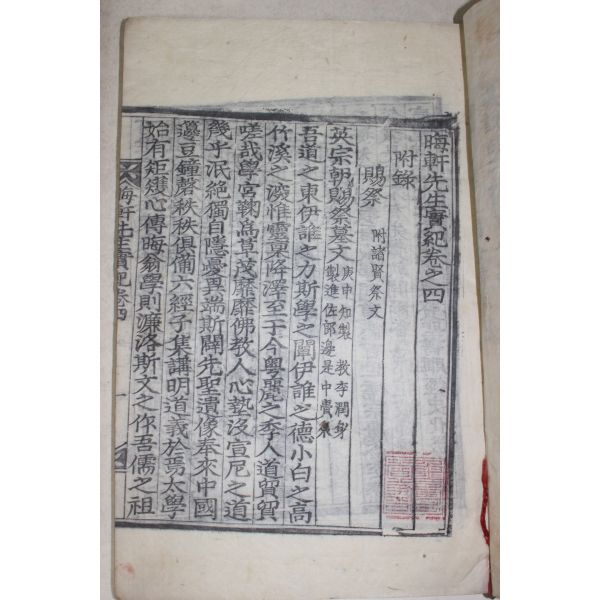 晦軒先生實紀卷之四
附錄
賜祭 附諸賢祭文
英宗朝賜祭墓文 庚申 知製 教李潤身
製進 佐郎邊是中賫來
吾道之東伊誰之力斯學之闡伊誰之德小白之高
竹溪之波惟靈稟降澤至于今粤麗之季人道貿貿
嗟哉學宮鞠爲草茂靡靡佛教人心墊沒宣尼之道
幾乎泯絕獨自隱憂異端斯闢先聖遺像奉來中國
籩豆鐘磬秩秩俱備六經子集講明道義於焉太學
始有矩矱心傳晦翁學則濂洛斯文之作吾儒之祖
晦軒先生實紀卷四
一